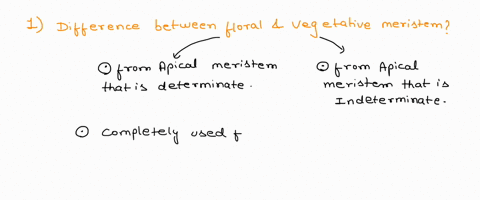 1) Difference between floral & vegetative meristem?
⊙ from Apical meristem that is determinate.
⊙ from Apical meristem that is Indeterminate.
⊙ Completely used f